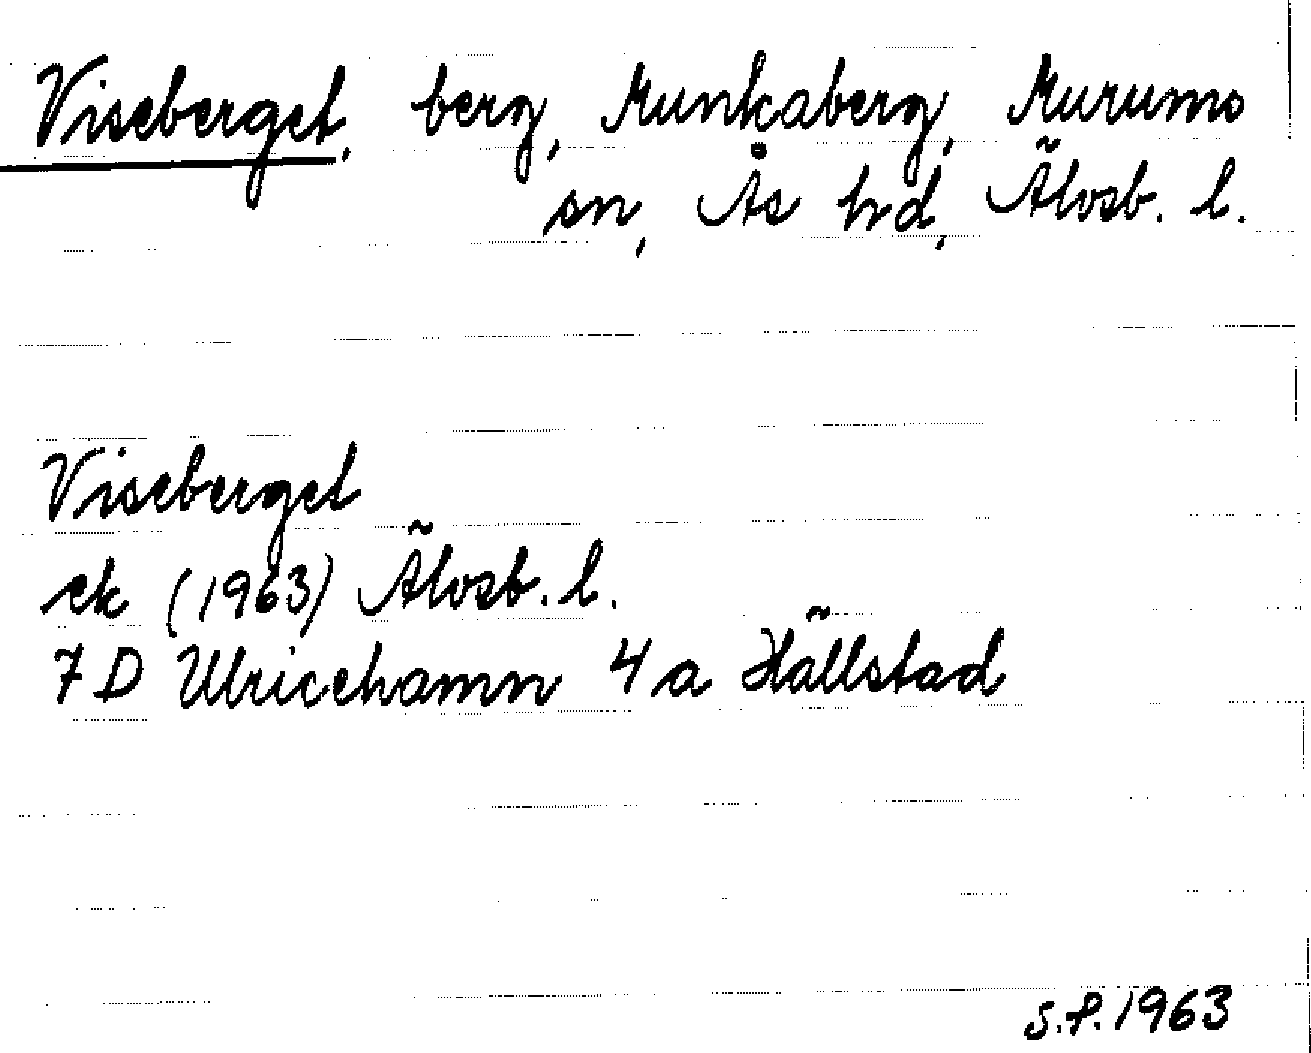 Viseberget, berg, Munkaberg, Murums
sn, Ås hd, Älvsb. l.
Viseberget
ek (1963) Älvsb. l.
7 D Ulricehamn 4 a Hällstad
S.P. 1963